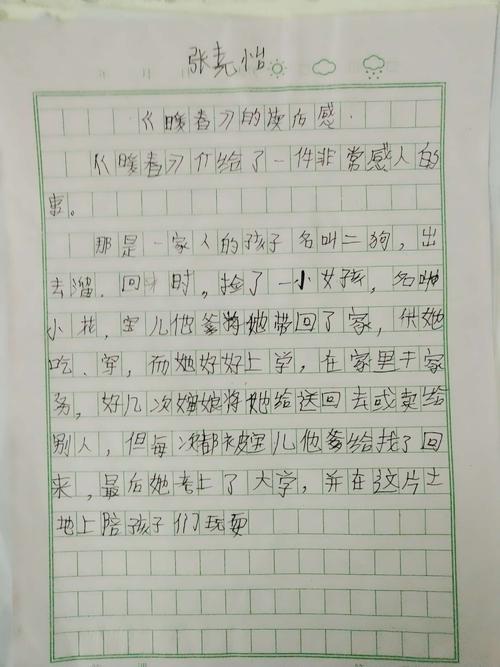 张尧怡
《暖春》的读后感.
《暖春》介给了一件非常感人的
事。
那是一家人的孩子名叫二狗,出
去溜.回来时,捡了一小女孩,名叫
小花,宝儿他爹将她带回了家,供她
吃、穿,而她好好上学,在家里干家
务,好几次婶娘将她给送回去或卖给
别人,但每次都被宝儿他爹给找了回
来,最后她考上了大学,并在这片土
地上陪孩子们玩耍